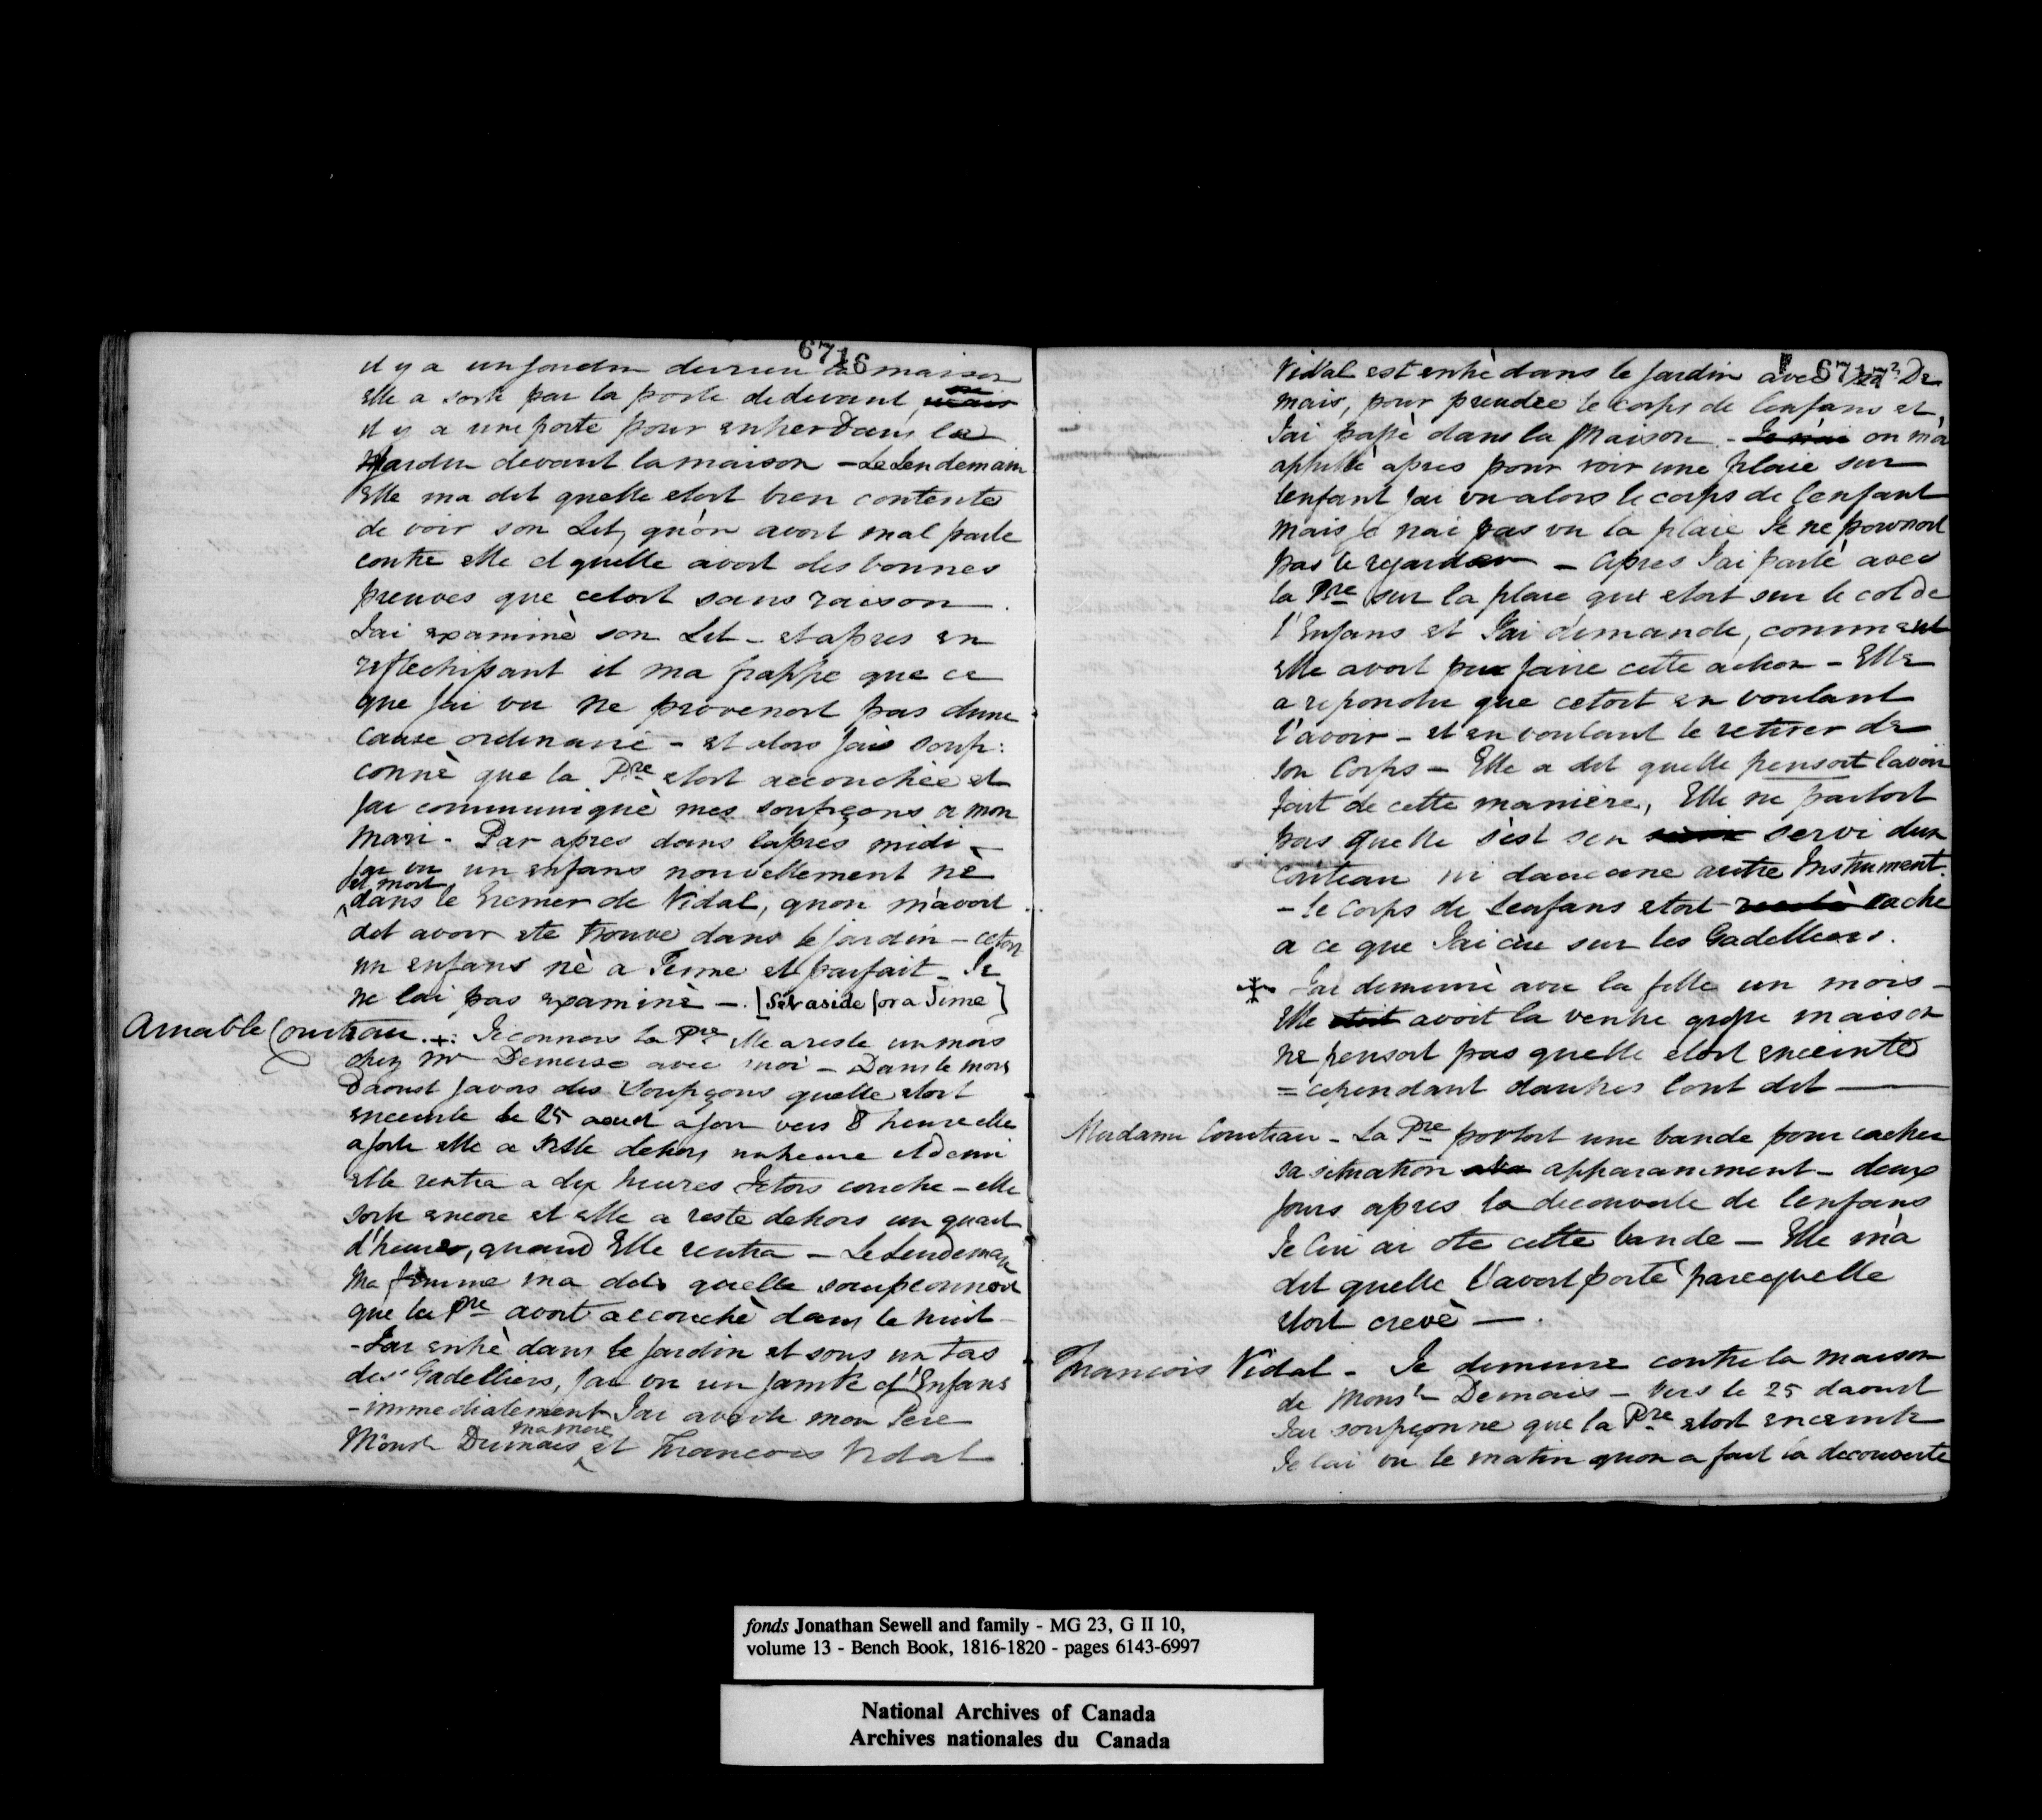 6716
il y a un jardin derriere la maison
elle a sorti par la porte de devant,
il y a une porte pour entrer Dans le
Jardin devant la maison – Le Lendemain
Elle ma dit quelle etoit bien contente
de voir son Lit, qu'on avoit mal parlé
contre elle et quelle avoit des bonnes
preuves que cetoit sans raison.
Jai examinè son Lit – et apres en
reflechissant il ma frappe que ce
que Jai vu ne provenoit pas dune
cause ordinaire – et alors Jais soup:
connè que la Pre etoit accouchèe et
Jai communiquè mes soupçons a mon
Mari – Par apres dans l'aprés midi –
Jai vu un enfans nouvellement nè
et mort
dans le Grenier de Vidal, quon m'avoit
dit avoir ete trouvé dans le jardin – cetoit
un enfans nè a Terme et parfait – Je
ne lai pas examinè –. [Set aside for a Time]
Amable Courteau .+. Je connois la Pre Elle a reste un mois
chez Mr avec moi – Dans le mois
Daoust Javois des Soupçons quelle etoit
enceinte le 25 aout vers 8 heure elle
a sorti elle a resté dehors unheure et demi
elle rentra a dix heures Jetois couche – elle
sorti encore et elle a resté dehors un quart
d'heures, quand Elle rentra – Le Lendemain
Ma femme ma dit quelle soupconnoit
que la Pre avoit accouchè dans la nuit –
– Jai entrè dans le Jardin et sous un tas
des Gadelliers, Jai vu un Jambe d'Enfans
– immediatement Jai averti mon Pere
ma mere
Monsr Dumais et Francois Vidal
6717
Vidal est entrè dans le Jardin avec Du
mais, pour prendre le corps de lenfans et
Jai passè dans la Maison – Je n'ai on m'a
appellè apres pour voir une plaie sur
lenfant Jai vu alors le corps de lenfant
mais je nai pas vu la plaie Je ne pouvoit
pas le regarder – Apres Jai parlè avec
la Pre sur la plaie qui etoit sur le col de
l'Enfans et Jai demande, comment
elle avoit pu faire cette action – Elle
a repondu que cetoit en voulant
l'avoir – et en voulant le retirer de
son Corps – Elle a dit quelle pensoit lavoir
fait de cette manière, Elle ne parloit
pas quelle s'est sen servi dun
couteau ni daucune autre Instrument.
– le corps de Lenfans etoit cache
a ce que Jai cru sur les Gadelliers.
Jai demeuré avec la fille un mois –
Elle etoit avoit la ventre grosse mais on
ne pensoit pas quelle etoit enceinte
= cependant dautres lont dit –
Madame Courteau – La Pre portoit une bande pour cacher
sa situation apparamment – deux
Jours apres la decouverte de lenfans
Je lui ai ote cette bande – Elle m'a
dit quelle l'avoit porté parcequelle
etoit crevè –.
Francois Vidal – Je demeure contre la maison
de Monsr Demais – Vers le 25 daoust
Jai soupçonne que la Pre etoit enceinte
Je lai vu le matin quon a fait la decouverte
fonds Jonathan Sewell and family - MG 23, G II 10,
volume 13 - Bench Book, 1816-1820 - pages 6143-6997
National Archives of Canada
Archives nationales du Canada